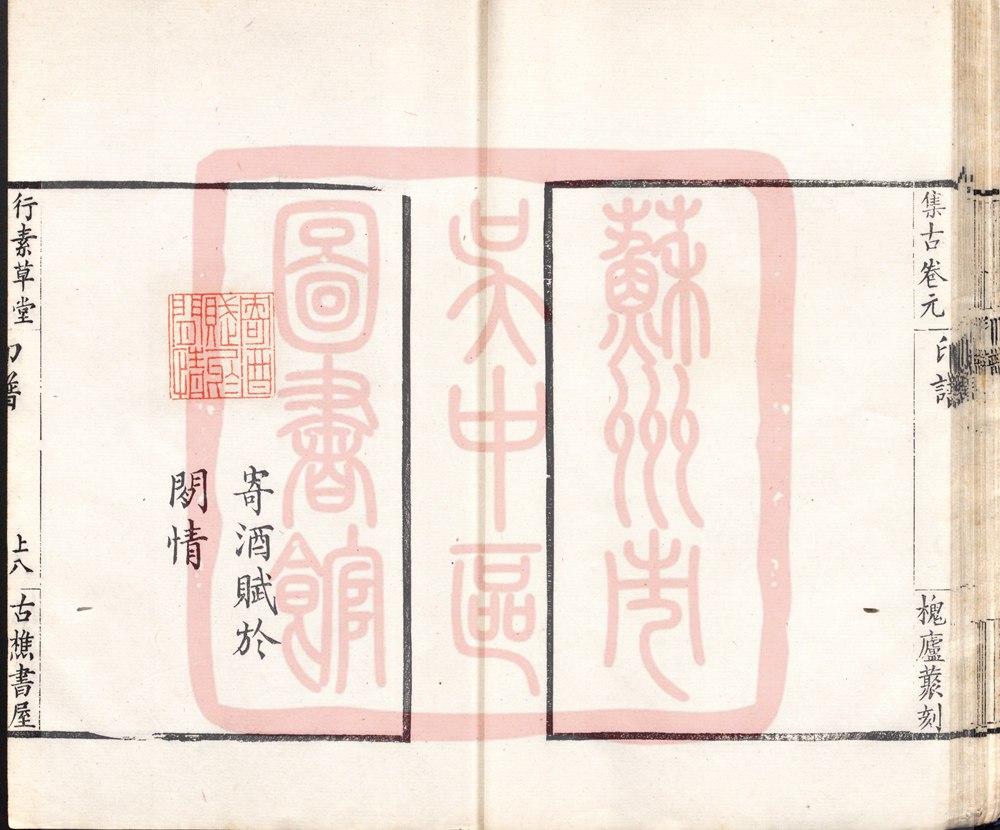 集古卷元
印譜
槐廬藂刻
蘇州市
吳中區
圖書館
寄酒
賦於
閒情
寄酒賦於
閒情
行素草堂
印譜
上八
古樵書屋